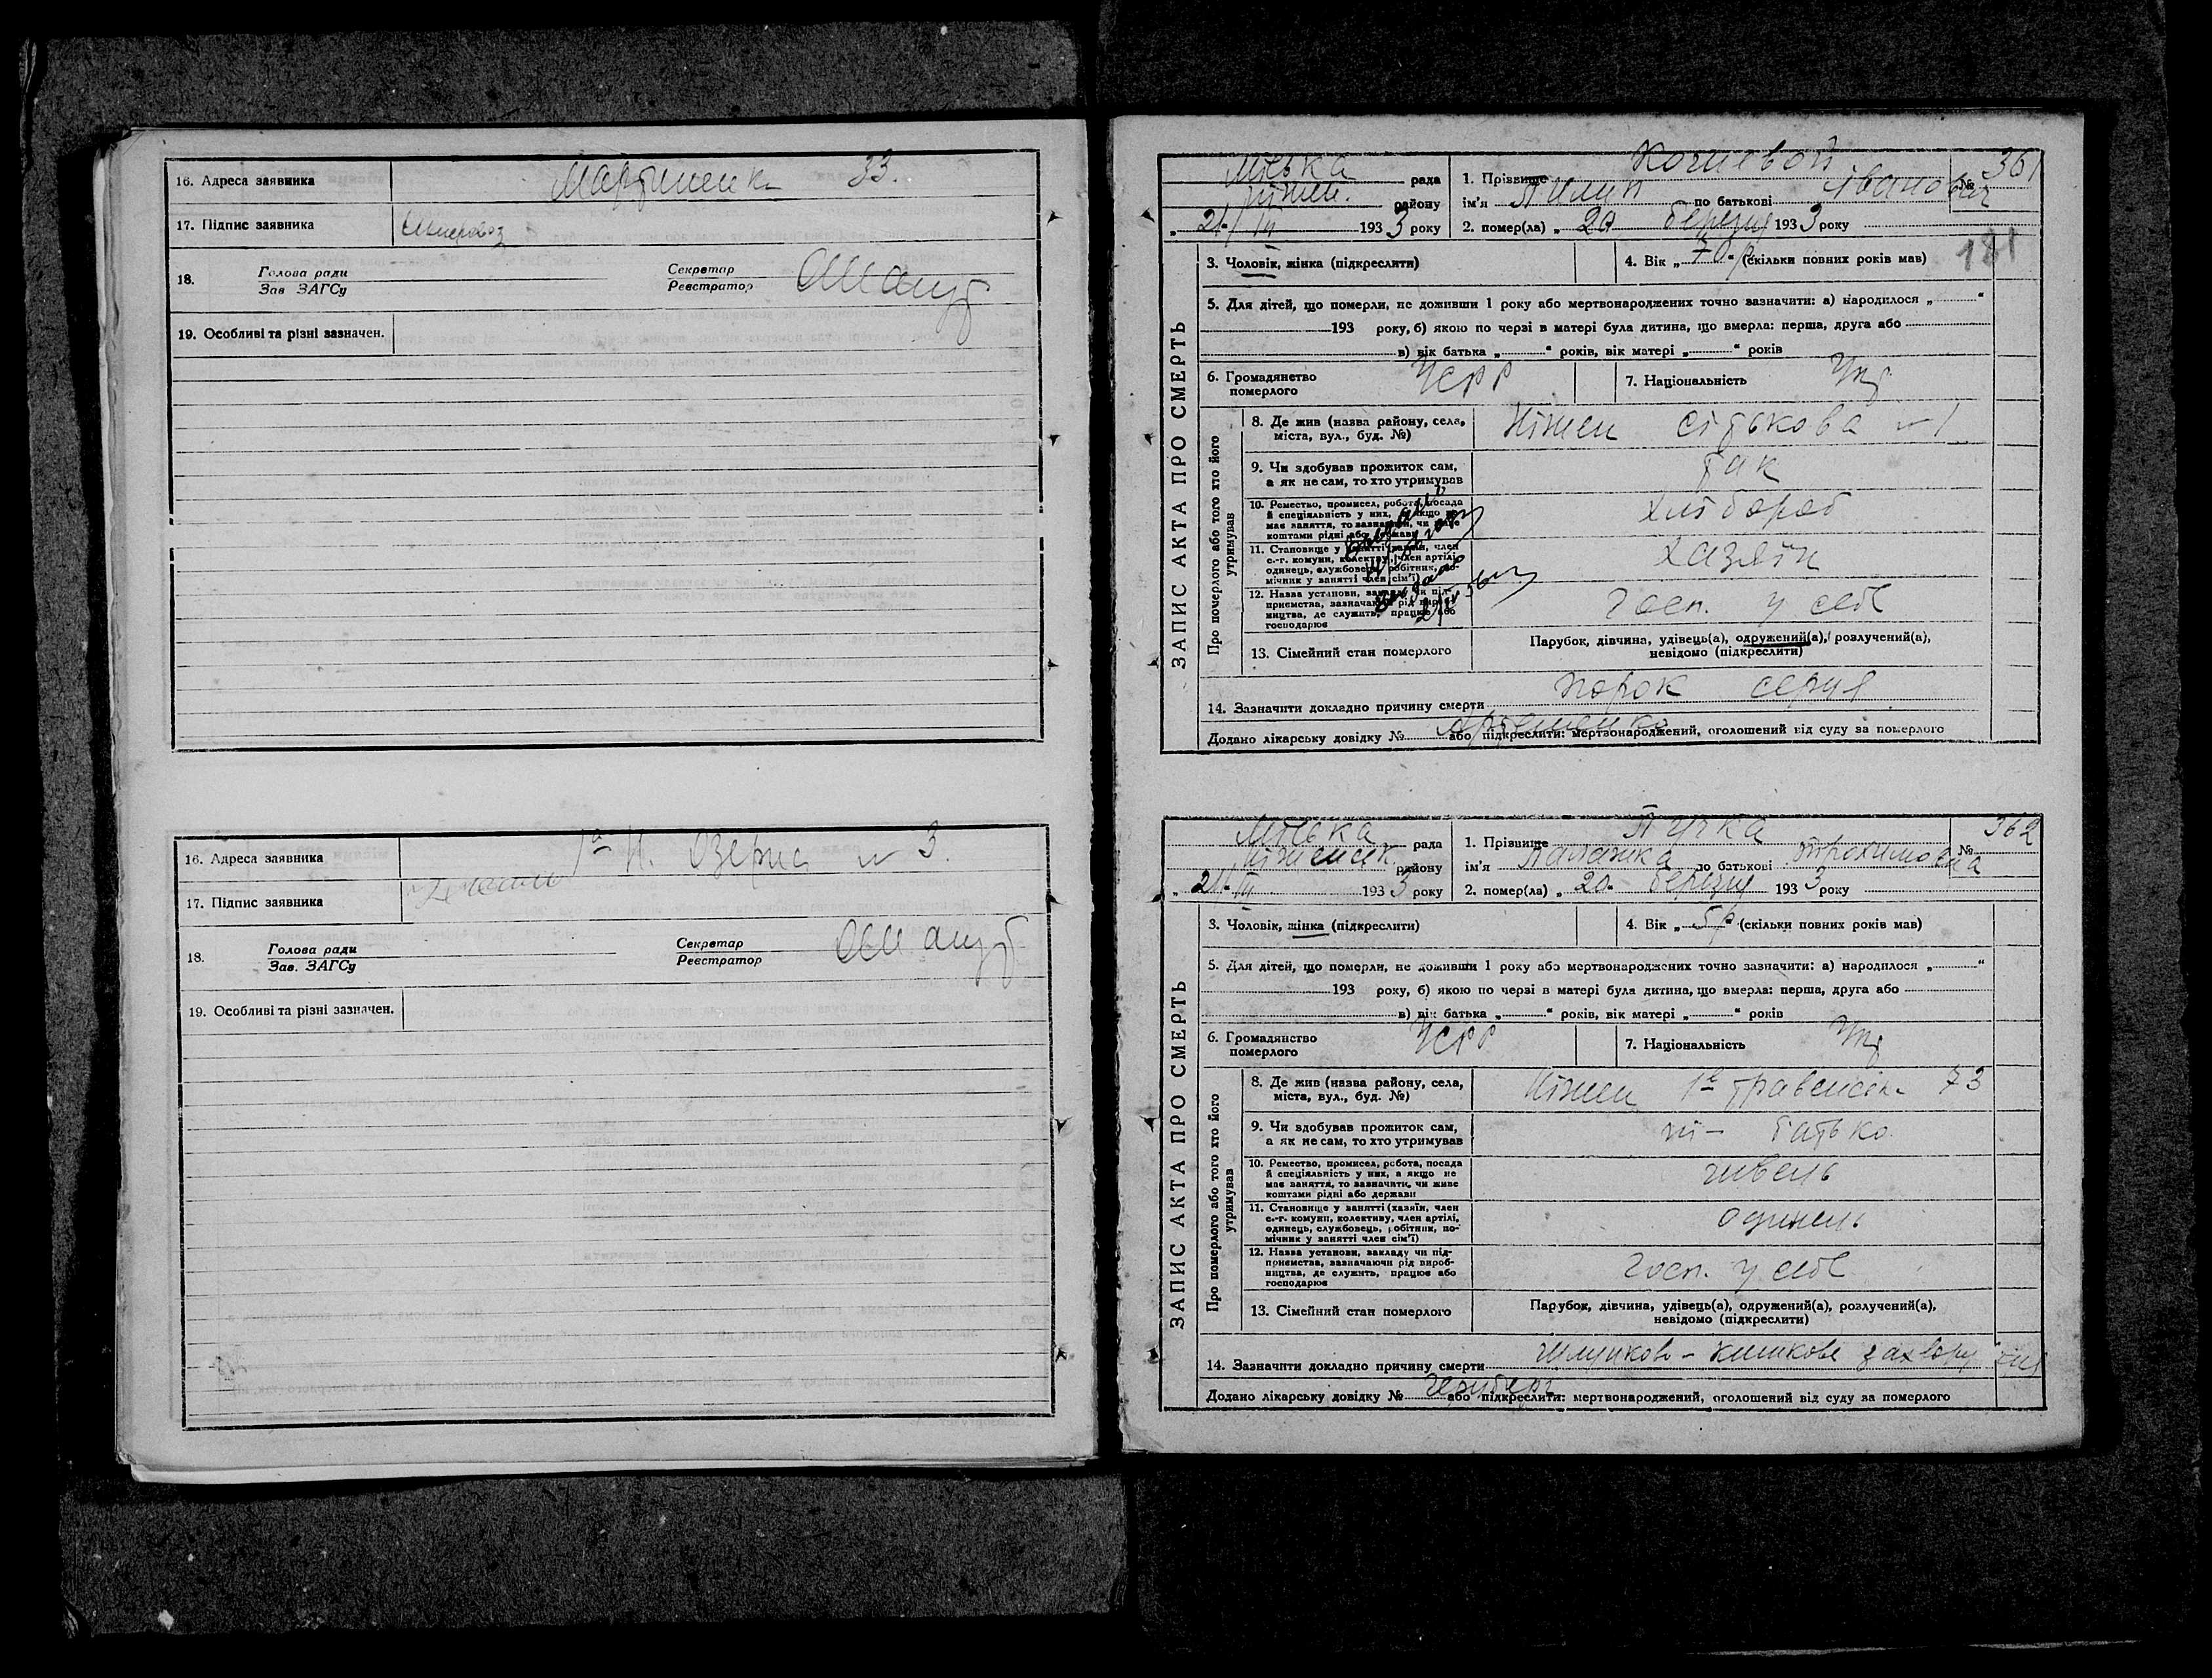 16. Адреса заявника Мартиненка 33.
17. Підпис заявника
18. Голова ради
Зав ЗАГСу
Секретар
Реєстратор
19. Особливі та різні зазначен.
16. Адреса заявника 1а Н. Озерна № 3.
17. Підпис заявника
18. Голова ради
Зав. ЗАГСу
Секретар
Реєстратор
19. Особливі та різні зазначен.
ЗАПИС АКТА ПРО СМЕРТЬ
Міська рада
Ніжен. району
„ 21/III 1933 року
1. Прізвище Кочиевой № 361
ім'я Пилип по батькові Іванович
2. помер(ла) „ 20 березня 1933 року
181
3. Чоловік, жінка (підкреслити)
4. Вік „ 70 р “ (скільки повних років мав)
5. Для дітей, що померли, не доживши 1 року або мертвонароджених точно зазначити: а) народилося „ “
193 року, б) якою по черзі в матері була дитина, що вмерла: перша, друга або
в) вік батька „ “ років, вік матері „ “ років
6. Громадянство
померлого УСРР
7. Національність Укр
Про померлого або того хто його
утримував
8. Де жив (назва району, села,
міста, вул., буд. №) Ніжен сітькова № 1
9. Чи здобував прожиток сам,
а як не сам, то хто утримував так
10. Ремество, промисел, робота, посада
й спеціяльність у них, а якщо не
має заняття, то зазначити, чи живе
коштами рідні або держави хлібороб
11. Становище у занятті (хазяїн, член
с.-г. комуни, колективу, член артілі,
одинець, службовець, робітник, по-
мічник у занятті член сім'ї) хазяїн
12. Назва установи, закладу чи під-
приємства, зазначаючи рід вироб-
ництва, де служить, працює або
господарює Госп. у себе
13. Сімейний стан померлого
Парубок, дівчина, удівець(а), одружений(а), розлучений(а),
невідомо (підкреслити)
14. Зазначити докладно причину смерти порок серця
Артеменко
Додано лікарську довідку № або підкреслити: мертвонароджений, оголошений від суду за померлого
ЗАПИС АКТА ПРО СМЕРТЬ
Міська рада
Ніженськ. району
„ 21/III 1933 року
1. Прізвище Пучка № 362
ім'я Палажка по батькові Трохимовна
2. помер(ла) „ 20 березня 1933 року
3. Чоловік, жінка (підкреслити)
4. Вік „ 5 р “ (скільки повних років мав)
5. Для дітей, що померли, не доживши 1 року або мертвонароджених точно зазначити: а) народилося „ “
193 року, б) якою по черзі в матері була дитина, що вмерла: перша, друга або
в) вік батька „ “ років, вік матері „ “ років
6. Громадянство
померлого УСРР
7. Національність Укр
Про померлого або того хто його
утримував
8. Де жив (назва району, села,
міста, вул., буд. №) Ніжен 1е травенськ. 73
9. Чи здобував прожиток сам,
а як не сам, то хто утримував ні - батько
10. Ремество, промисел, робота, посада
й спеціяльність у них, а якщо не
має заняття, то зазначити, чи живе
коштами рідні або держави швець
11. Становище у занятті (хазяїн, член
с.-г. комуни, колективу, член артілі,
одинець, службовець, робітник, по-
мічник у занятті член сім'ї) одинець
12. Назва установи, закладу чи під-
приємства, зазначаючи рід вироб-
ництва, де служить, працює або
господарює Госп. у себе
13. Сімейний стан померлого
Парубок, дівчина, удівець(а), одружений(а), розлучений(а),
невідомо (підкреслити)
14. Зазначити докладно причину смерти Шлунково - кишкове захворування
Додано лікарську довідку № або підкреслити: мертвонароджений, оголошений від суду за померлого